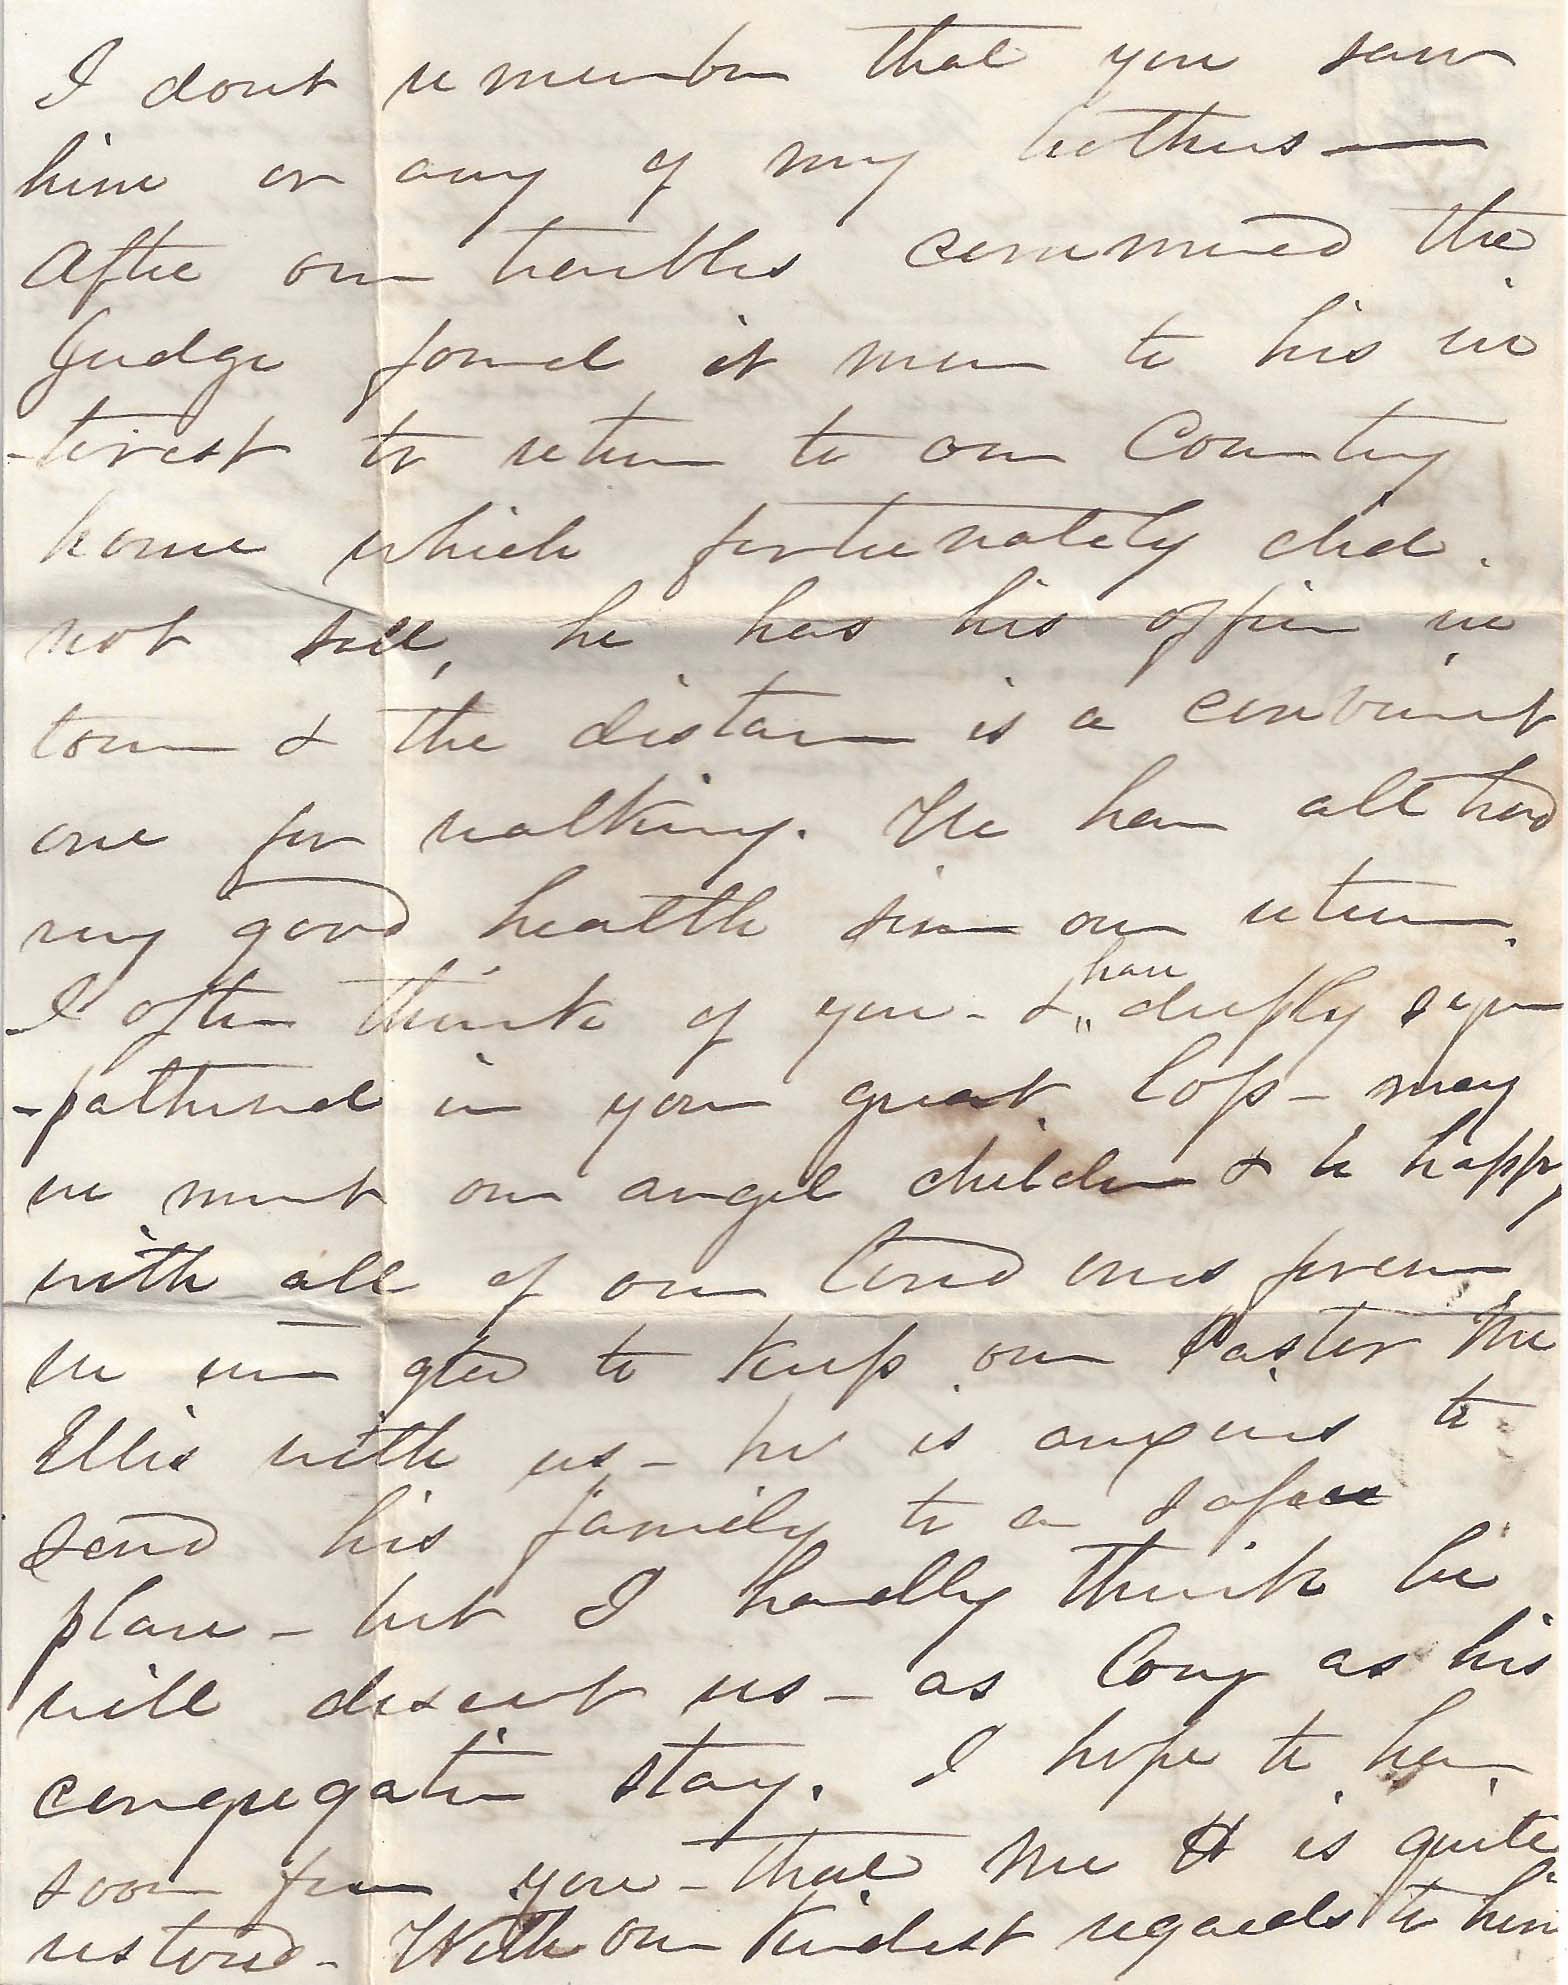 I dont remember that you saw
him or any of my brothers —
After our troubles commenced the
Judge found it more to his in
-terest to return to our Country
home which fortunately did
not sell, he has his office in
town & the distance is a convenient
one for walking. We have all had
very good health since our return.
I often think of you - & have deeply sym
-pathised in your great loss - may
we meet our angel children & be happy
with all of our loved ones forever
we are glad to keep our Pastor Mr
Ellis with us - he is anxious to
send his family to a safer
place - but I hardly think he
will desert us - as long as his
congregation stay. I hope to hear
soon from you - that Mr H is quite
restored - With our kindest regards to him